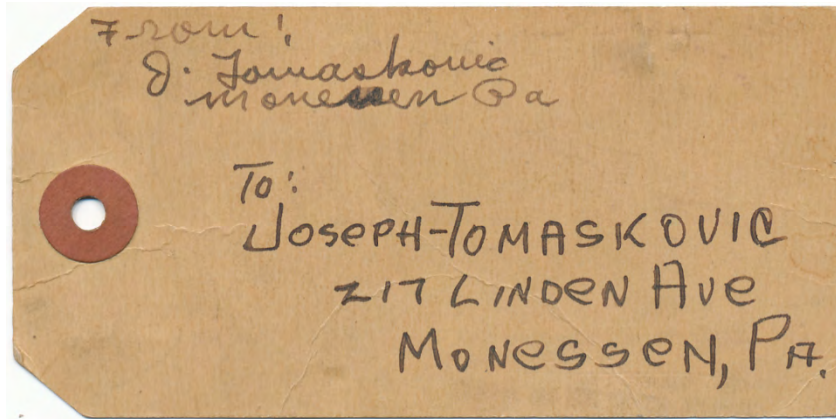 From!
J. Tomaskovic
Monessen Pa
To:
JOSEPH-TOMASKOVIC
217 LINDEN AVE
MONESSEN, PA.